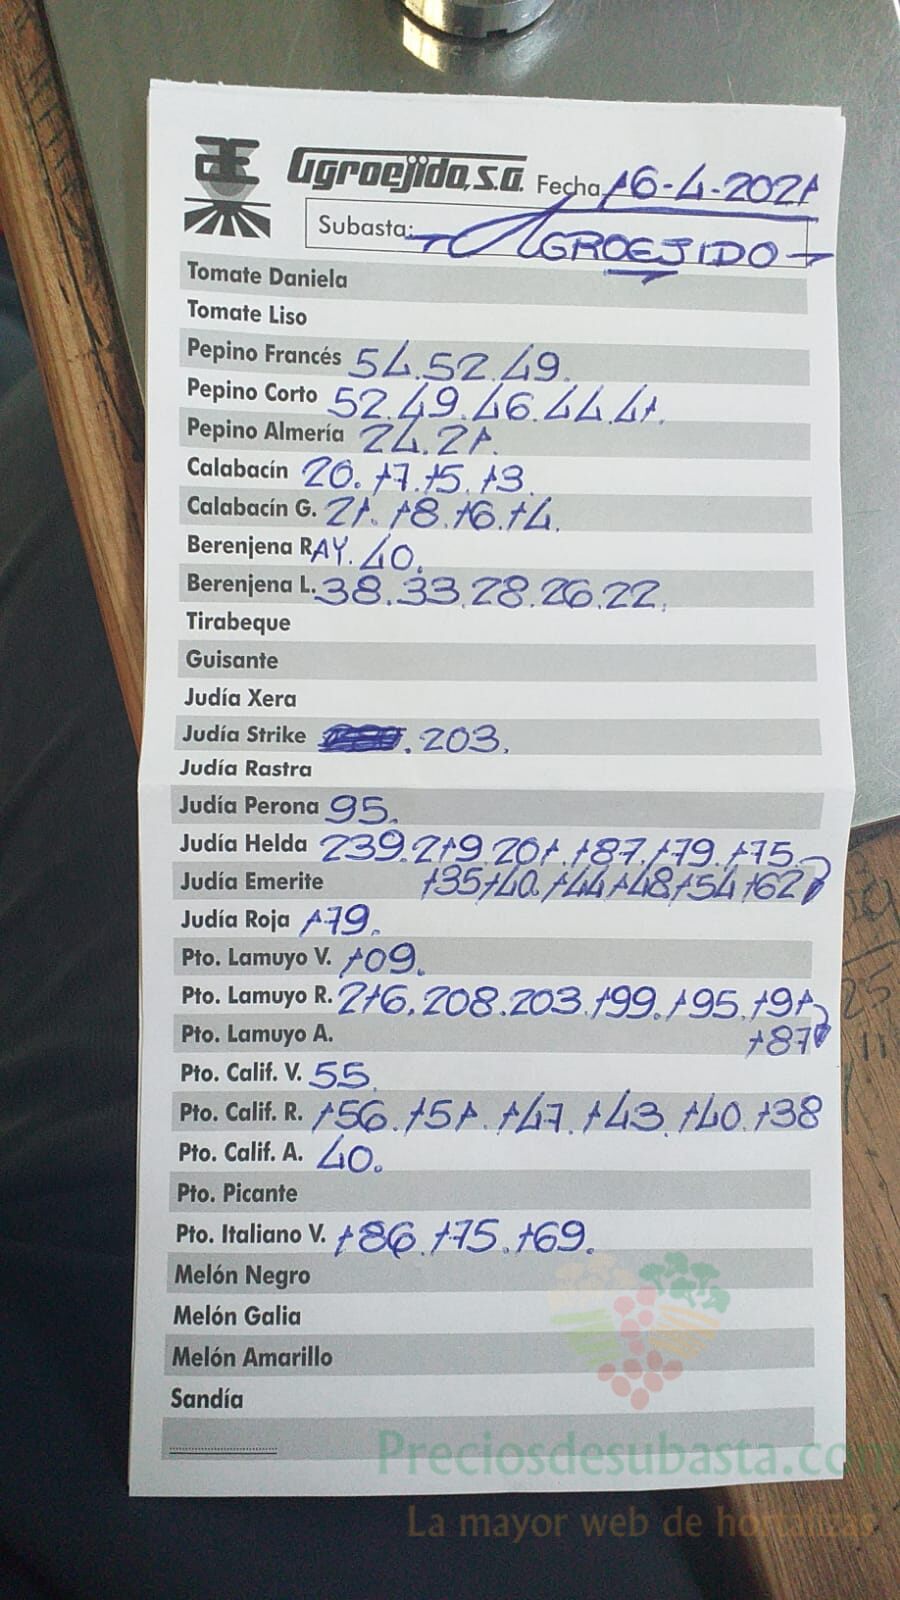 Agroejido, s.a. Fecha 16-4-2021
Subasta: AGROEJIDO
Tomate Daniela
Tomate Liso
Pepino Francés 54.52.49.
Pepino Corto 52.49.46.44.41.
Pepino Almería 24.21.
Calabacín 20.17.15.13.
Calabacín G. 21.18.16.14.
Berenjena RAY.40.
Berenjena L. 38.33.28.26.22.
Tirabeque
Guisante
Judía Xera
Judía Strike .203.
Judía Rastra
Judía Perona 95.
Judía Helda 239.219.201.187.179.175.
Judía Emerite 135.140.144.148.154.162
Judía Roja 179.
Pto. Lamuyo V. 109.
Pto. Lamuyo R. 216.208.203.199.195.191
Pto. Lamuyo A. 187
Pto. Calif. V. 55.
Pto. Calif. R. 156.151.147.143.140.138
Pto. Calif. A. 40.
Pto. Picante
Pto. Italiano V. 186.175.169.
Melón Negro
Melón Galia
Melón Amarillo
Sandía
Preciosdesubasta.com
La mayor web de hortalizas